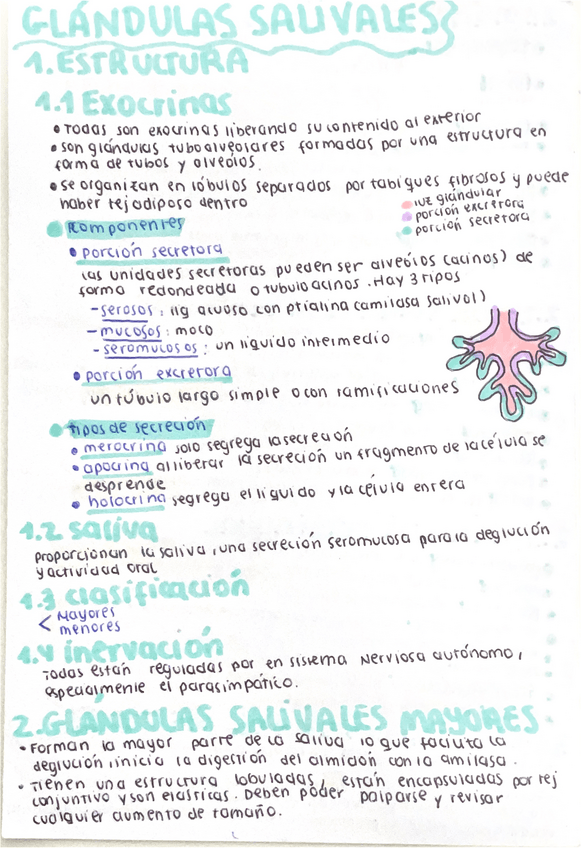 GLÁNDULAS SALIVALES
1. ESTRUCTURA
1.1 Exocrinas
• Todas son exocrinas liberando su contenido al exterior
• son glándulas tuboalveolares formadas por una estructura en
forma de tubos y alveolos.
• se organizan en lóbulos separados por tabiques fibrosos y puede
haber tej adiposo dentro
luz glándular
porción excretora
porción secretora
componentes
• porción secretora
las unidades secretoras pueden ser alveolos (acinos) de
forma redondeada o tubuloacinos. Hay 3 tipos
- serosos: liq acuoso con ptialina (amilasa salival)
- mucosos: moco
- seromucosos: un líquido intermedio
• porción excretora
un túbulo largo simple o con ramificaciones
tipos de secreción
• merocrina solo segrega la secreción
• apocrina al liberar la secreción un fragmento de la célula se
desprende
• holocrina segrega el líquido y la célula entera
1.2 saliva
proporcionan la saliva, una secreción seromucosa para la deglución
y actividad oral
1.3 clasificación
< Mayores
menores
1.4 inervación
Todas están reguladas por en sistema Nerviosa autónomo,
especialmente el parasimpático.
2. GLÁNDULAS SALIVALES MAYORES
• Forman la mayor parte de la saliva lo que facilita la
deglución, inicia la digestión del almidón con la amilasa.
• Tienen una estructura lobulada, están encapsuladas por tej
conjuntivo y son elásticas. Deben poder palparse y revisar
cualquier aumento de tamaño.